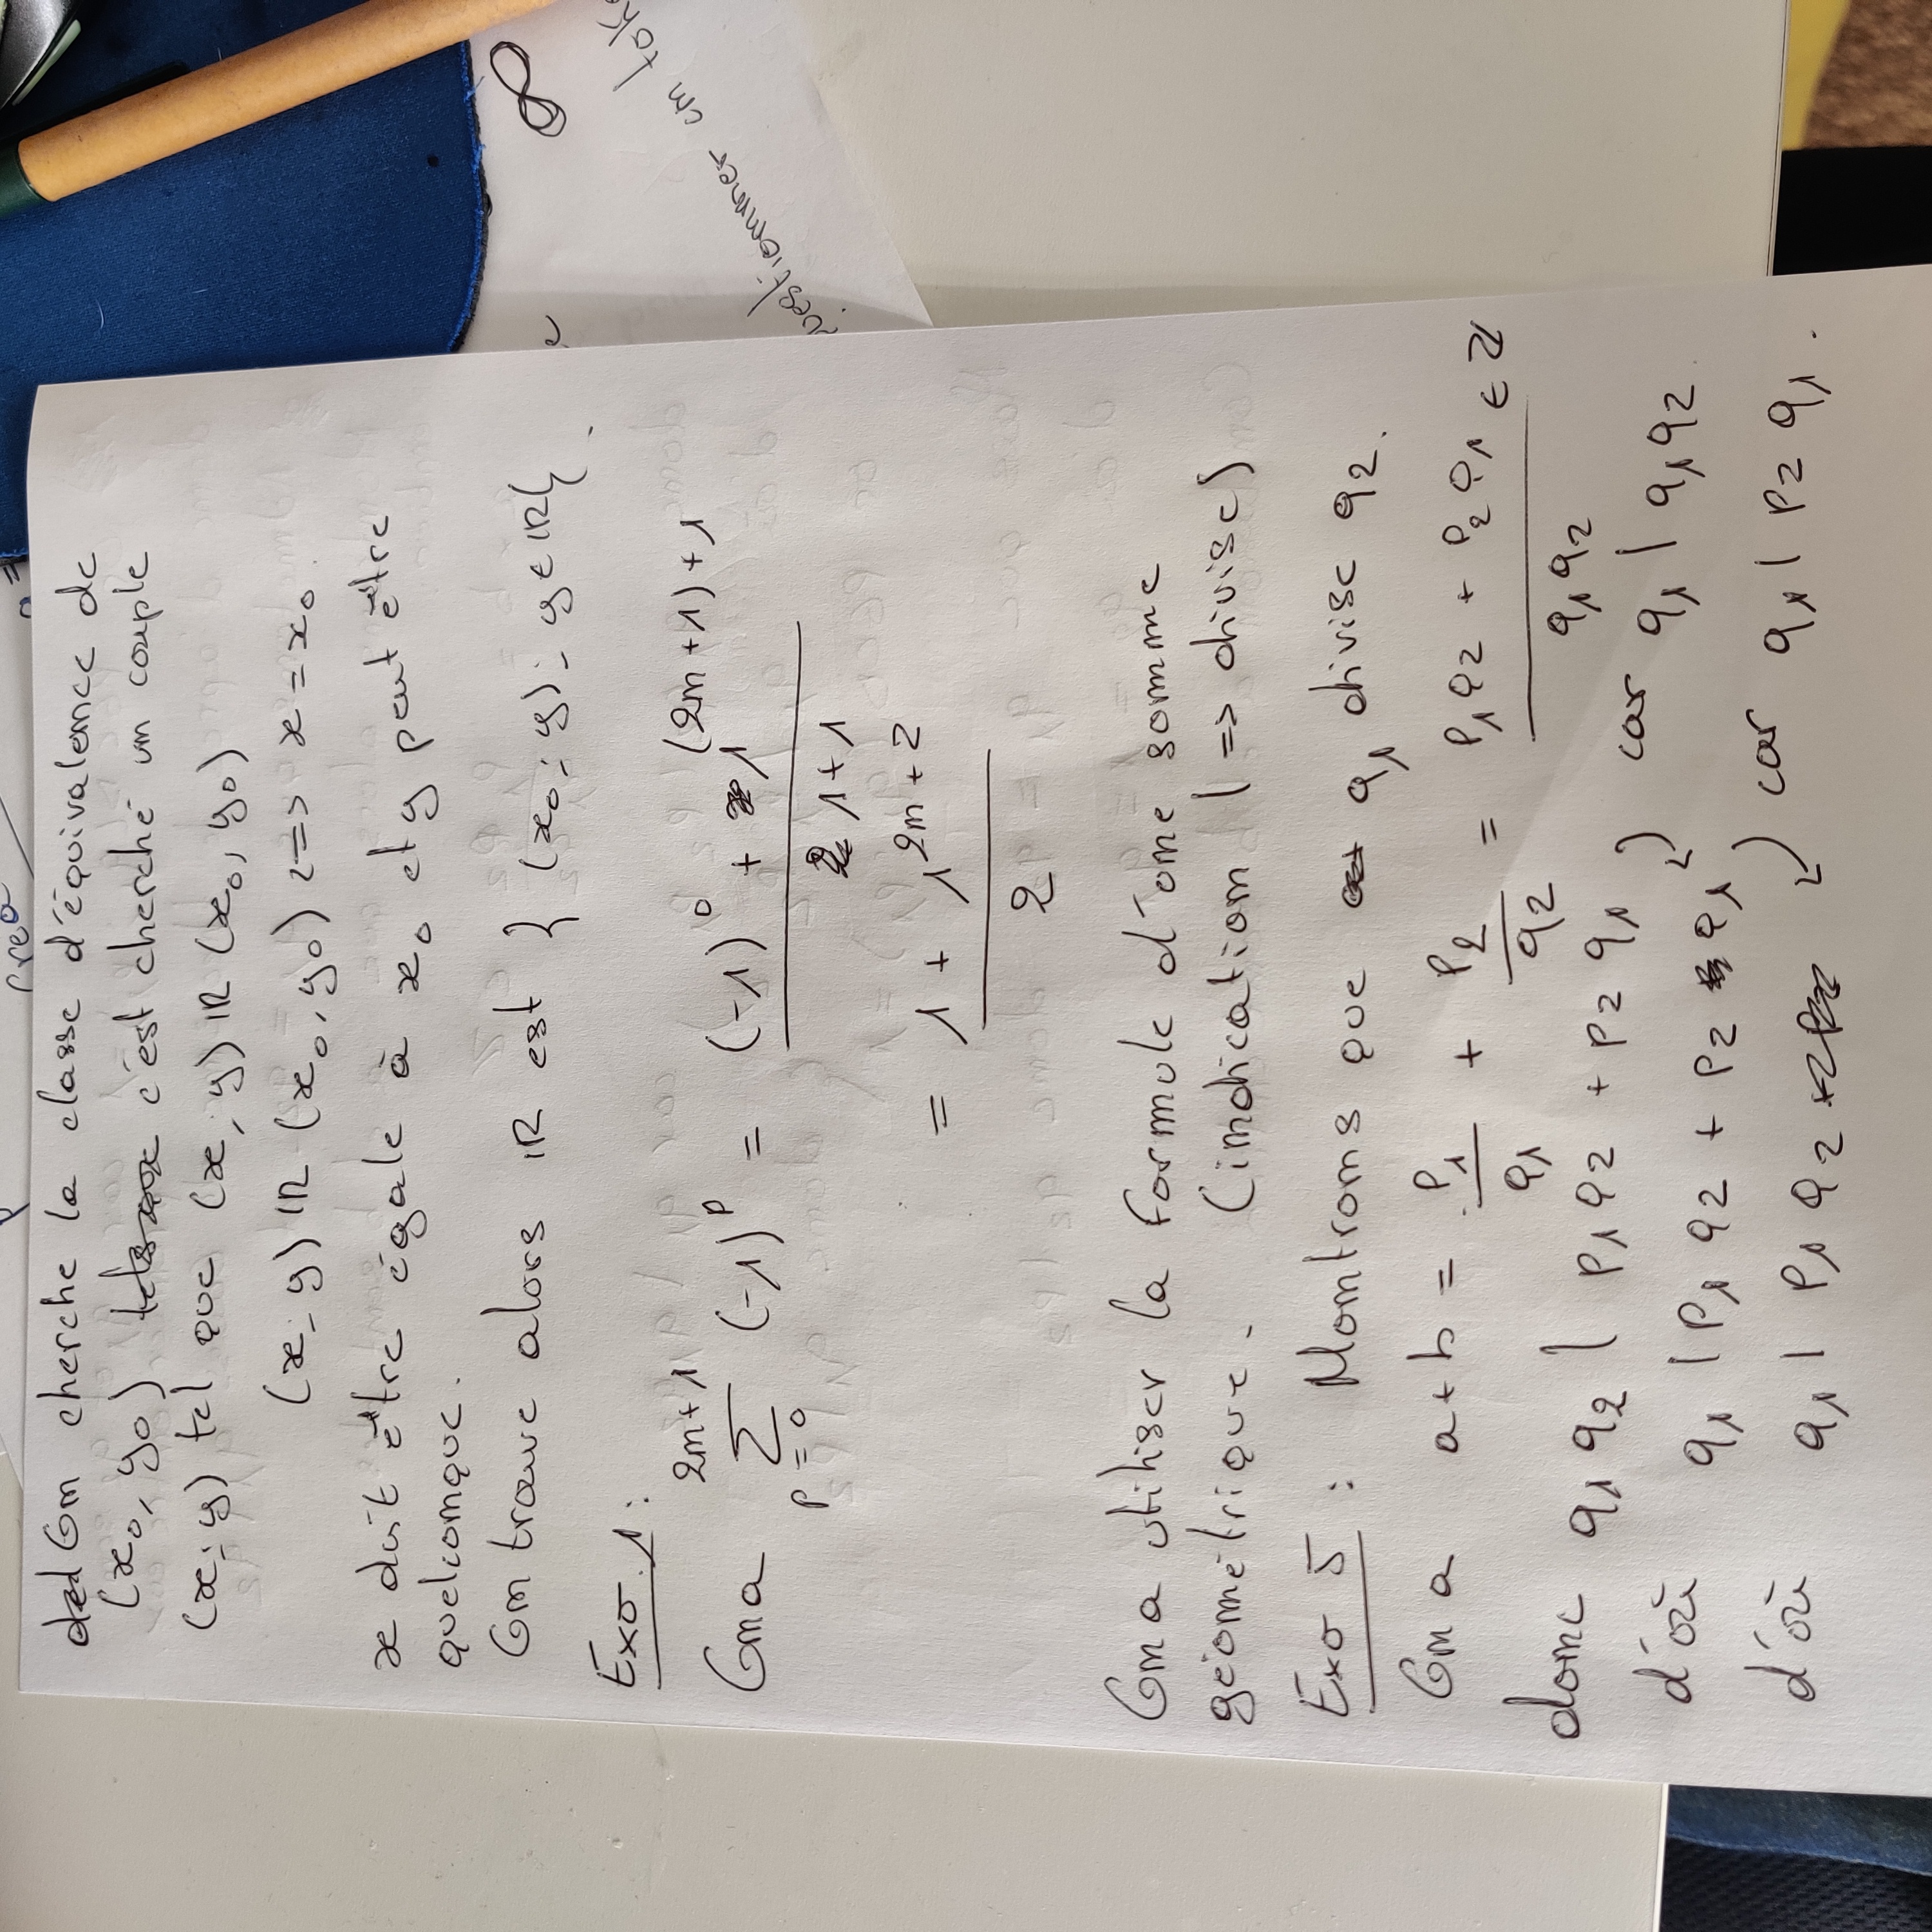 On cherche la classe d'équivalence de
(x₀, y₀) c'est cherché un couple
(x; y) tel que (x, y) ℝ (x₀, y₀)
(x; y) ℝ (x₀, y₀) <=> x = x₀.
x doit être égale à x₀ et y peut être
quelconque.
On trouve alors ℝ est } (x₀; y); y ∈ ℝ{.
Exo. 1 :
On a ∑_{p=0}^{2n+1} (-1)^p = ((-1)^0 + 1^{(2n+1)+1}) / (1+1)
= (1 + 1^{2n+2}) / 2
On a utiliser la formule d'une somme
géométrique. (indication | => divise)
Exo 5 : Montrons que q₁ divise q₂.
On a a+b = p₁/q₁ + p₂/q₂ = (p₁q₂ + p₂q₁)/(q₁q₂) ∈ ℤ
donc q₁q₂ | p₁q₂ + p₂q₁ car q₁ | q₁q₂.
d'où q₁ | p₁q₂ + p₂q₁
d'où q₁ | p₁q₂ car q₁ | p₂q₁.
∞
questionner en